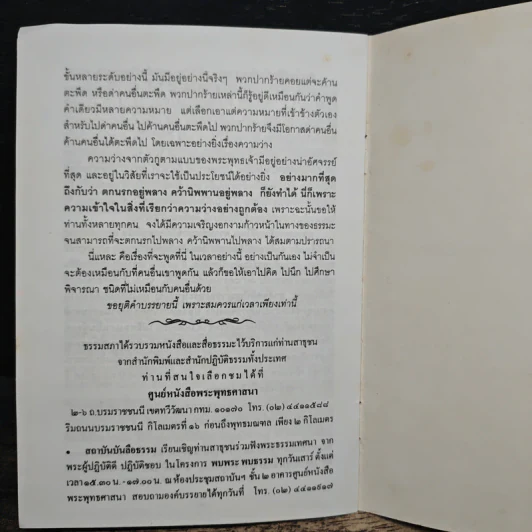 ชั้นหลายระดับอย่างนี้ มันมีอยู่อย่างนี้จริงๆ พวกปากร้ายคอยแต่จะค้าน
ตะพึด หรือด่าคนอื่นตะพึด พวกปากร้ายเหล่านี้ก็รู้อยู่ดีเหมือนกันว่าคำพูด
คำเดียวมีหลายความหมาย แต่เลือกเอาแต่ความหมายที่เข้าข้างตัวเอง
สำหรับไปด่าคนอื่น ไปค้านคนอื่นตะพึดไป พวกปากร้ายจึงมีโอกาสด่าคนอื่น
ค้านคนอื่นได้ตะพึดไป โดยเฉพาะอย่างยิ่งเรื่องความว่าง
ความว่างจากตัวกูตามแบบของพระพุทธเจ้ามีอยู่อย่างน่าอัศจรรย์
ที่สุด และอยู่ในวิสัยที่เราจะใช้เป็นประโยชน์ได้อย่างยิ่ง อย่างมากที่สุด
ถึงกับว่า ตกนรกอยู่พลาง คว้านิพพานอยู่พลาง ก็ยังทำได้ นี่ก็เพราะ
ความเข้าใจในสิ่งที่เรียกว่าความว่างอย่างถูกต้อง เพราะฉะนั้นขอให้
ท่านทั้งหลายทุกคน จงได้มีความเจริญงอกงามก้าวหน้าในทางของธรรมะ
จนสามารถที่จะตกนรกไปพลาง คว้านิพพานไปพลาง ได้สมตามปรารถนา
นี่แหละ คือเรื่องที่จะพูดที่นี่ ในเวลาอย่างนี้ อย่างเป็นกันเอง ไม่จำเป็น
จะต้องเหมือนกับที่คนอื่นเขาพูดกัน แล้วก็ขอให้เอาไปคิด ไปนึก ไปศึกษา
พิจารณา ชนิดที่ไม่เหมือนกับคนอื่นด้วย
ขอยุติคำบรรยายนี้ เพราะสมควรแก่เวลาเพียงเท่านี้
ธรรมสภาได้รวบรวมหนังสือและสื่อธรรมะไว้บริการแก่ท่านสาธุชน
จากสำนักพิมพ์และสำนักปฏิบัติธรรมทั้งประเทศ
ท่านที่สนใจเลือกชมได้ที่
ศูนย์หนังสือพระพุทธศาสนา
๒-๖ ถ.บรมราชชนนี เขตทวีวัฒนา กทม. ๑๐๑๗๐ โทร. (๐๒) ๔๔๑๑๕๘๘
ริมถนนบรมราชชนนี กิโลเมตรที่ ๑๖ ก่อนถึงพุทธมณฑล เพียง ๒ กิโลเมตร
• สถาบันบันลือธรรม เรียนเชิญท่านสาธุชนร่วมฟังพระธรรมเทศนา จาก
พระผู้ปฏิบัติดี ปฏิบัติชอบ ในโครงการ พบพระ พบธรรม ทุกวันเสาร์ ตั้งแต่
เวลา ๑๕.๓๐ น.-๑๗.๐๐ น. ณ ห้องประชุมสถาบันฯ ชั้น ๒ อาคารศูนย์หนังสือ
พระพุทธศาสนา สอบถามองค์บรรยายได้ทุกวันที่ โทร. (๐๒) ๔๔๑๑๙๑๗